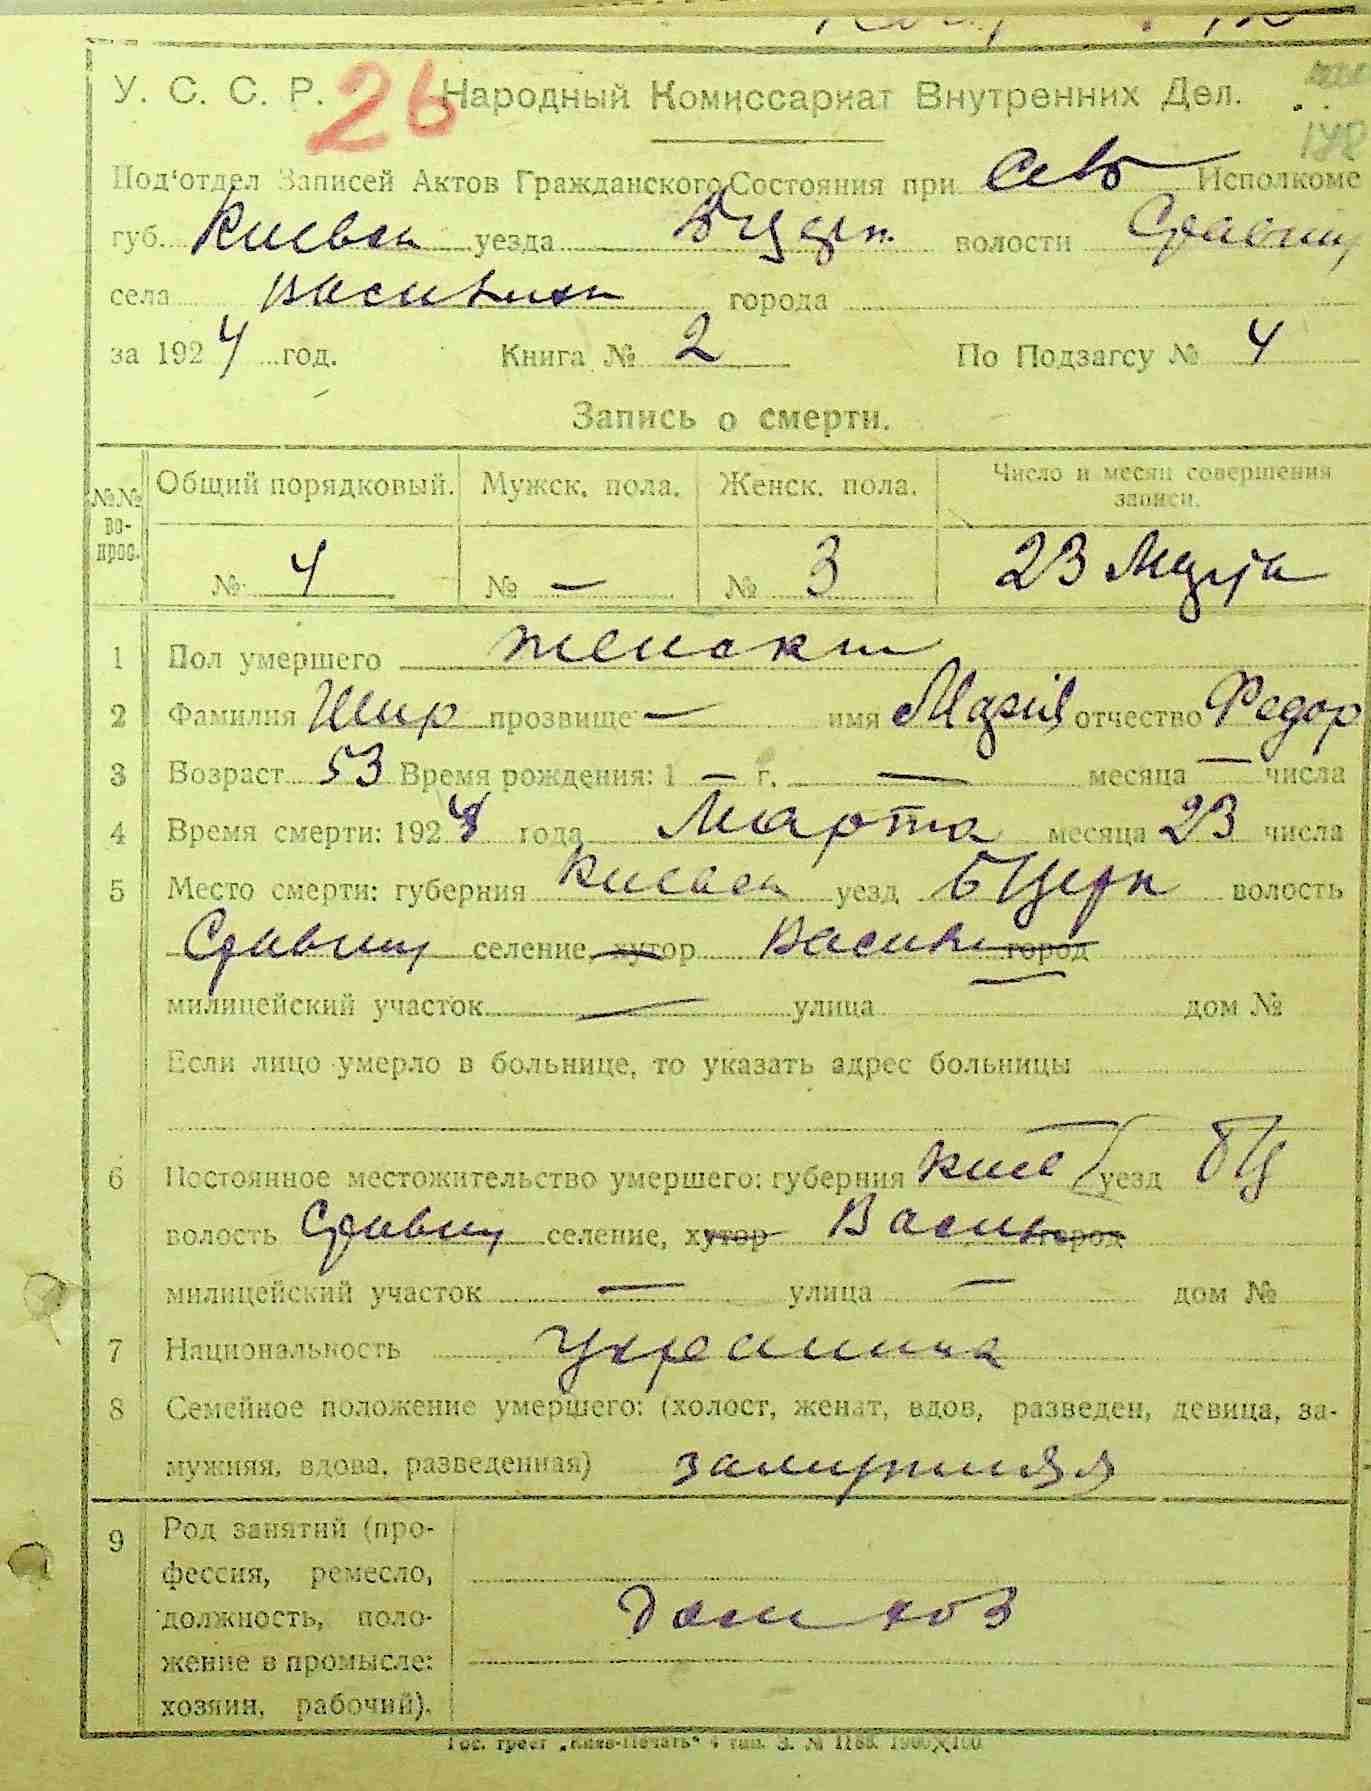 У. С. С. Р. 26 Народный Комиссариат Внутренних Дел.
178
Под‘отдел Записей Актов Гражданского Состояния при Исполкоме
губ. Киевск уезда БЦерк. волости
села городa
за 1924 год. Книга № 2 По Подзагсу № 4
Запись о смерти.
№№ вопрос. Общий порядковый. Мужск. пола. Женск. пола. Число и месяц совершения записи.
№ 4 № — № 3 23 Марта
1 Пол умершего женский
2 Фамилия Шир прозвище — имя Мария отчество Федор
3 Возраст 53 Время рождения: 1 — г. — месяца — числа
4 Время смерти: 1924 года Марта месяца 23 числа
5 Место смерти: губерния Киевск уезд БЦерк волость
селение, хутор город
милицейский участок — улица — дом №
Если лицо умерло в больнице, то указать адрес больницы
6 Постоянное местожительство умершего: губерния Киев уезд БЦ
волость селение, хутор город
милицейский участок — улица — дом №
7 Национальность украинка
8 Семейное положение умершего: (холост, женат, вдов, разведен, девица, за-
мужняя, вдова, разведенная) замужняя
9 Род занятий (про-
фессия, ремесло,
должность, поло- Дом хоз
жение в промысле:
хозяин, рабочий).
Гос. трест „Киев-Печать“ 4 тип. З. №